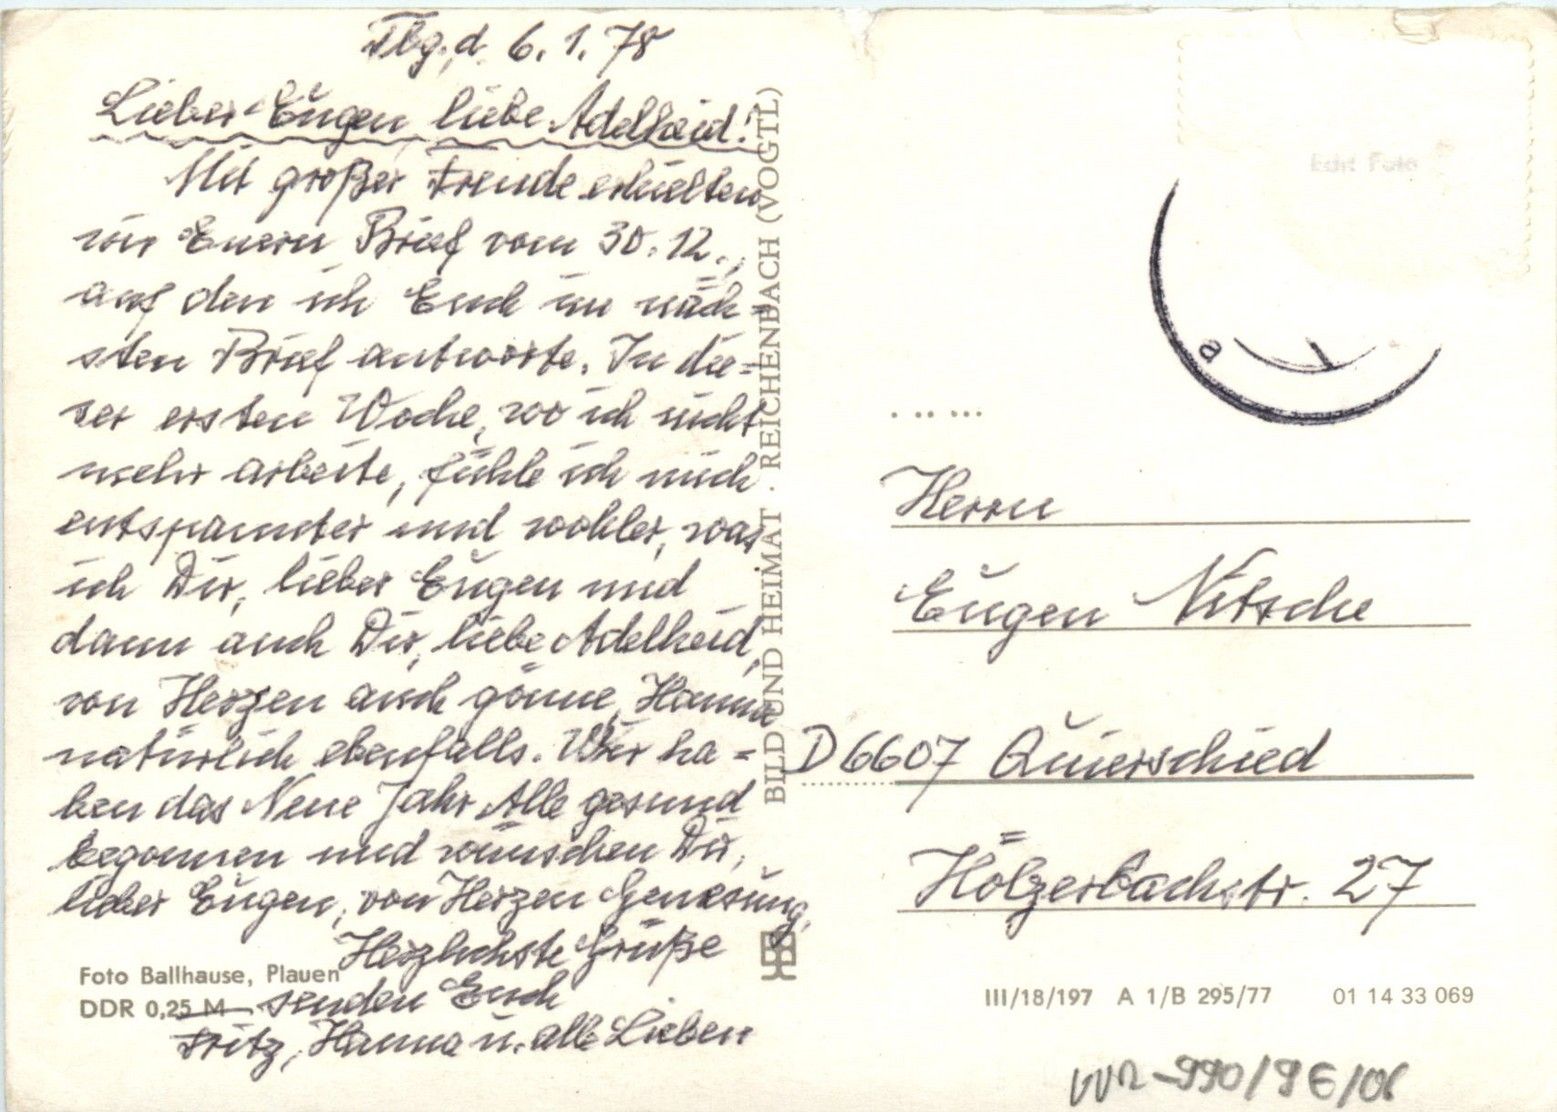 Tbg., d. 6.1.78
Lieber Eugen, liebe Adelheid!
Mit großer Freude erhielten
wir Euern Brief vom 30.12.,
auf den ich Euch im näch=
sten Brief antworte. In die=
ser ersten Woche, wo ich nicht
mehr arbeite, fühle ich mich
entspannter und wohler, was
ich Dir, lieber Eugen und
dann auch Dir, liebe Adelheid,
von Herzen auch gönne, Hanna
natürlich ebenfalls. Wir ha=
ben das Neue Jahr Alle gesund
begonnen und wünschen Dir,
lieber Eugen, von Herzen Genesung.
Herzlichste Grüße
senden Euch
Fritz, Hanna u. alle Lieben
Foto Ballhause, Plauen
DDR 0,25 M
BILD UND HEIMAT · REICHENBACH (VOGTL)
Echt Foto
a
Herrn
Eugen Nitsche
D 6607 Quierschied
Hölzerbachstr. 27
III/18/197 A 1/B 295/77 01 14 33 069